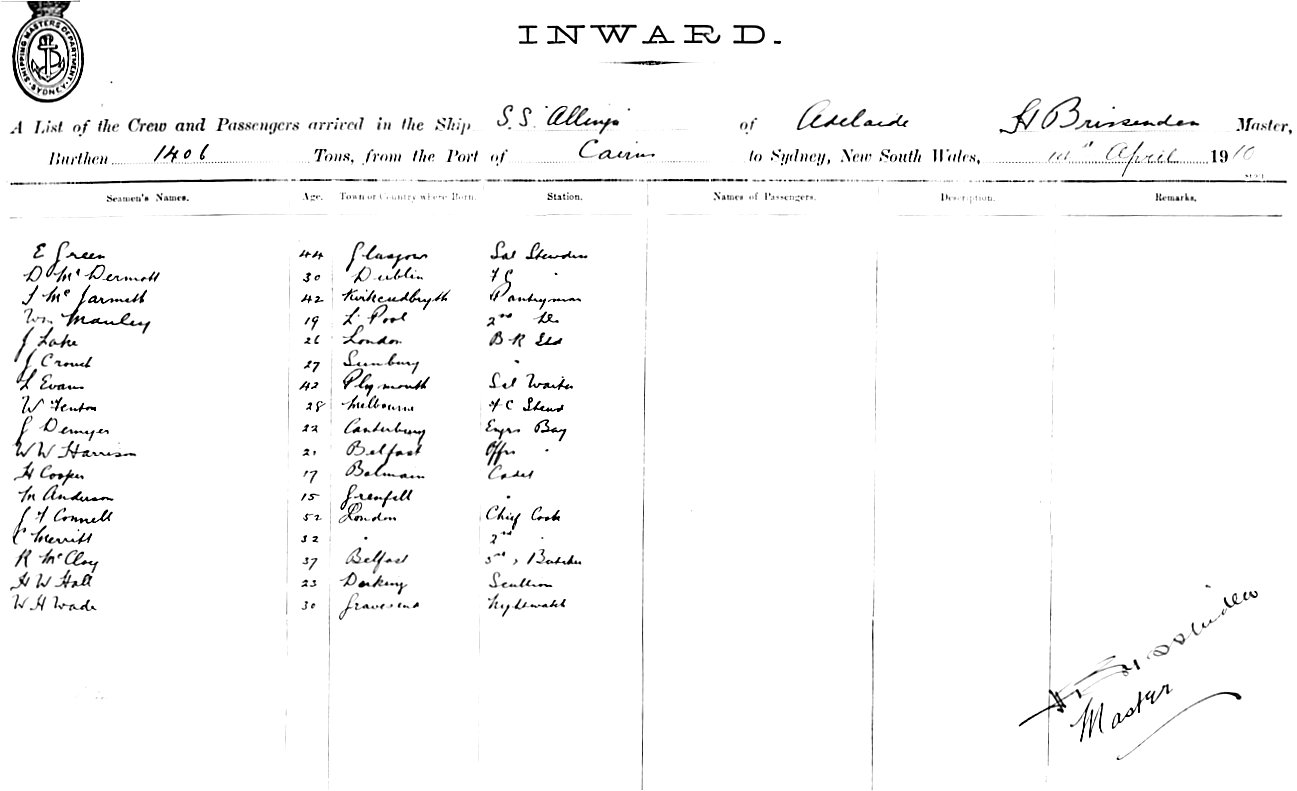 SHIPPING MASTERS DEPARTMENT SYDNEY
INWARD.
A List of the Crew and Passengers arrived in the Ship S.S. Allinga of Adelaide H Brissenden Master,
Burthen 1406 Tons, from the Port of Cairns to Sydney, New South Wales, April 1910
Seamen's Names. Age. Town or Country where Born. Station. Names of Passengers. Description. Remarks.
E Green 44 Glasgow Sal Stewdss
D McDermott 30 Dublin F C "
McJarmett 42 Kirkcudbryth Pantryman
Wm Manley 19 L'Pool 2nd Do
J Lake 26 London B R Std
J Crouch 27 Sunbury "
L Evans 42 Plymouth Sal Waiter
W Fenton 28 Melbourne F C Stewd
J Demyer 22 Canterbury Engrs Boy
W W Harrison 21 Belfast Offrs "
H Cooper 17 Balmain Cadet
M Anderson 15 Grenfell "
J F Connell 52 London Chief Cook
C Merritt 32 " 2nd "
R McCloy 37 Belfast 3rd , Butcher
H W Hall 23 Dorking Scullion
W H Wade 30 Gravesend Nightwatch
H Brissenden
Master